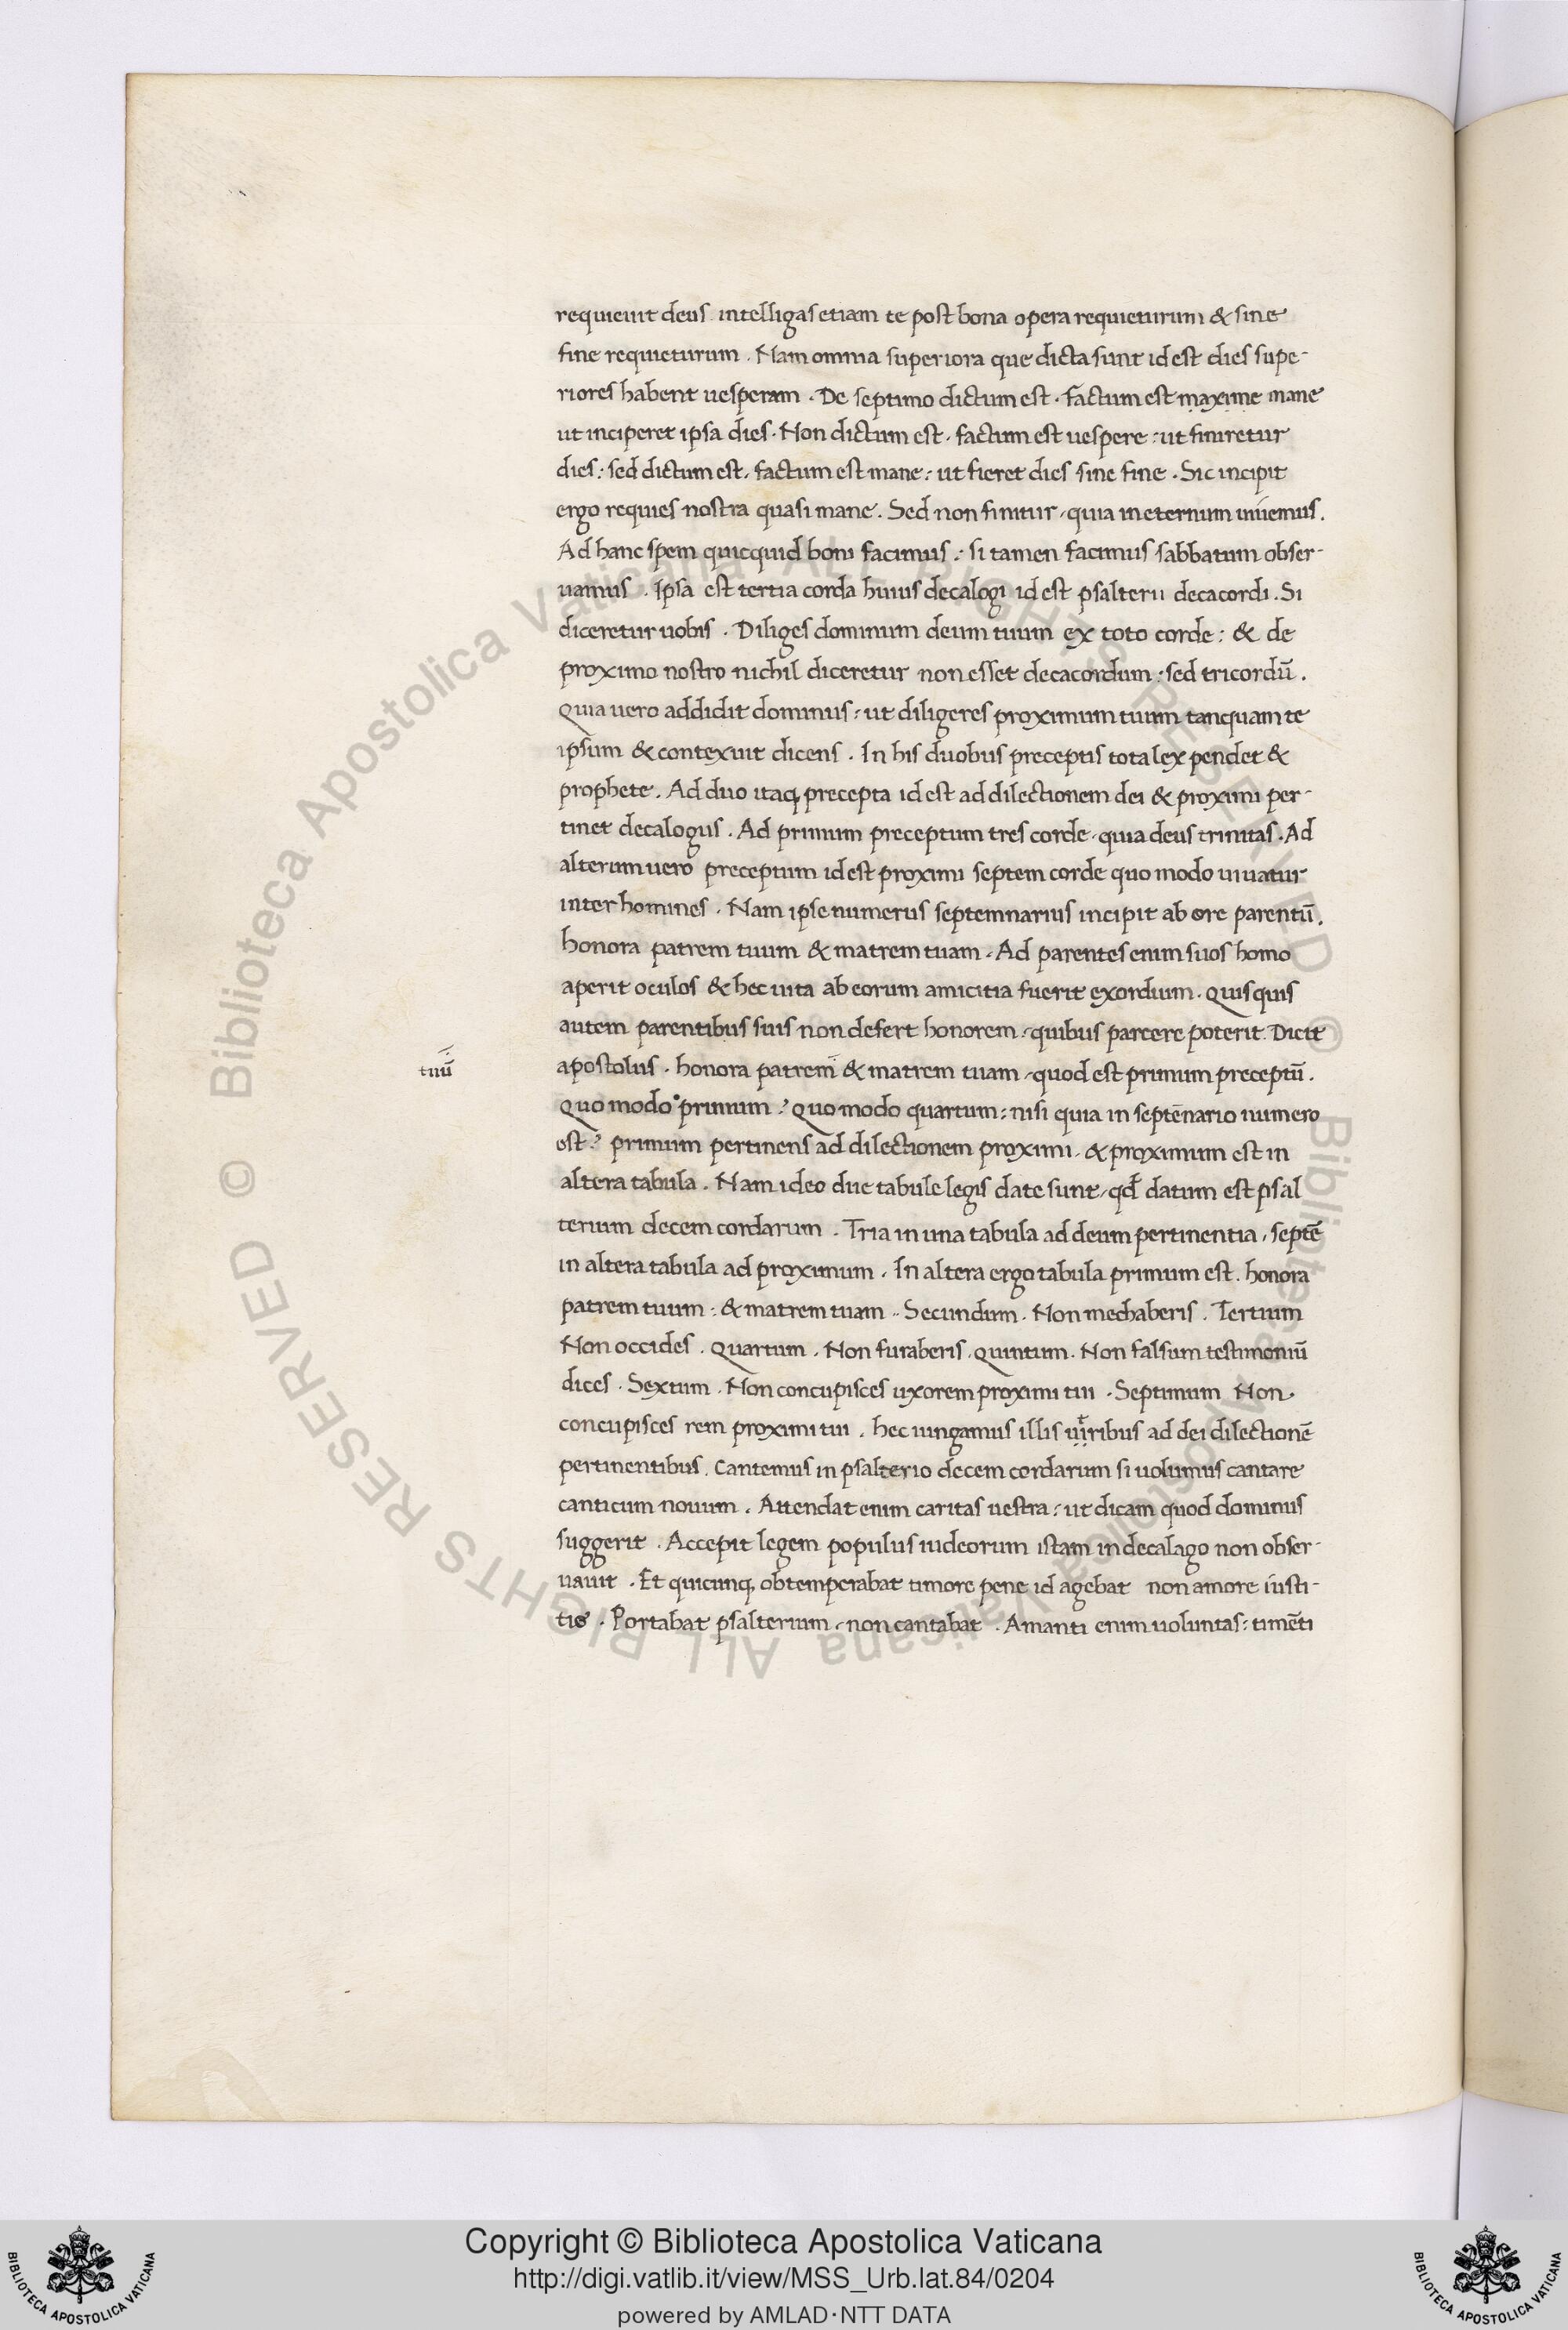 requieuit deus intelligas etiam te post bona opera requieturum & sine
fine requieturum . Nam omnia superiora que dicta sunt id est dies supe-
riores habent uesperam . De septimo dictum est . factum est maxime mane
ut inciperet ipsa dies . Non dictum est . factum est uespere : ut finiretur
dies : sed dictum est . factum est mane : ut fieret dies sine fine . Sic incipit
ergo requies nostra quasi mane . Sed non finitur , quia in eternum uiuemus .
Ad hanc spem quicquid boni facimus : si tamen facimus sabbatum obser-
uamus . Ipsa est tertia corda huius decalogi id est psalterii decacordi . Si
diceretur uobis . Diliges dominum deum tuum ex toto corde : & de
proximo nostro nichil diceretur non esset decacordum : sed tricordū .
Quia uero addidit dominus : ut diligeres proximum tuum tanquam te
ipsum & contexuit dicens . In his duobus preceptis tota lex pendet &
prophete . Ad duo itaq, precepta id est ad dilectionem dei & proximi per-
tinet decalogus . Ad primum preceptum tres corde , quia deus trinitas . Ad
alterum uero preceptum id est proximi septem corde quo modo uiuatur
inter homines . Nam ipse numerus septemnarius incipit ab ore parentū .
honora patrem tuum & matrem tuam . Ad parentes enim suos homo
aperit oculos & hec uita ab eorum amicitia fuerit exordium . Quisquis
autem parentibus suis non defert honorem : quibus parcere poterit . Dicit
tuū
apostolus . honora patrem & matrem tuam , quod est primum preceptū .
Quo modo primum ? Quo modo quartum : nisi quia in septēnario numero
est ? primum pertinens ad dilectionem proximi , & proximum est in
altera tabula . Nam ideo due tabule legis date sunt , qd̄ datum est psal
terium decem cordarum . Tria in una tabula ad deum pertinentia , septē
in altera tabula ad proximum . In altera ergo tabula primum est . honora
patrem tuum : & matrem tuam . Secundum . Non mechaberis . Tertium
Non occides . Quartum . Non furaberis . Quintum . Non falsum testimoniū
dices . Sextum . Non concupisces uxorem proximi tui . Septimum Non
concupisces rem proximi tui . hec iungamus illis ribus ad dei dilectionē
pertinentibus . Cantemus in psalterio decem cordarum si uolumus cantare
canticum nouum . Attendat enim caritas uestra : ut dicam quod dominus
suggerit . Accepit legem populus iudeorum istam in decalago non obser-
uauit . Et quicunq, obtemperabat timore pene id agebat non amore iusti-
tie . Portabat psalterium , non cantabat . Amanti enim uoluntas : timēti
© Biblioteca Apostolica Vaticana ALL RIGHTS RESERVED © Biblioteca Apostolica Vaticana ALL RIGHTS RESERVED
Copyright © Biblioteca Apostolica Vaticana
http://digi.vatlib.it/view/MSS_Urb.lat.84/0204
powered by AMLAD·NTT DATA
BIBLIOTECA APOSTOLICA VATICANA
BIBLIOTECA APOSTOLICA VATICANA